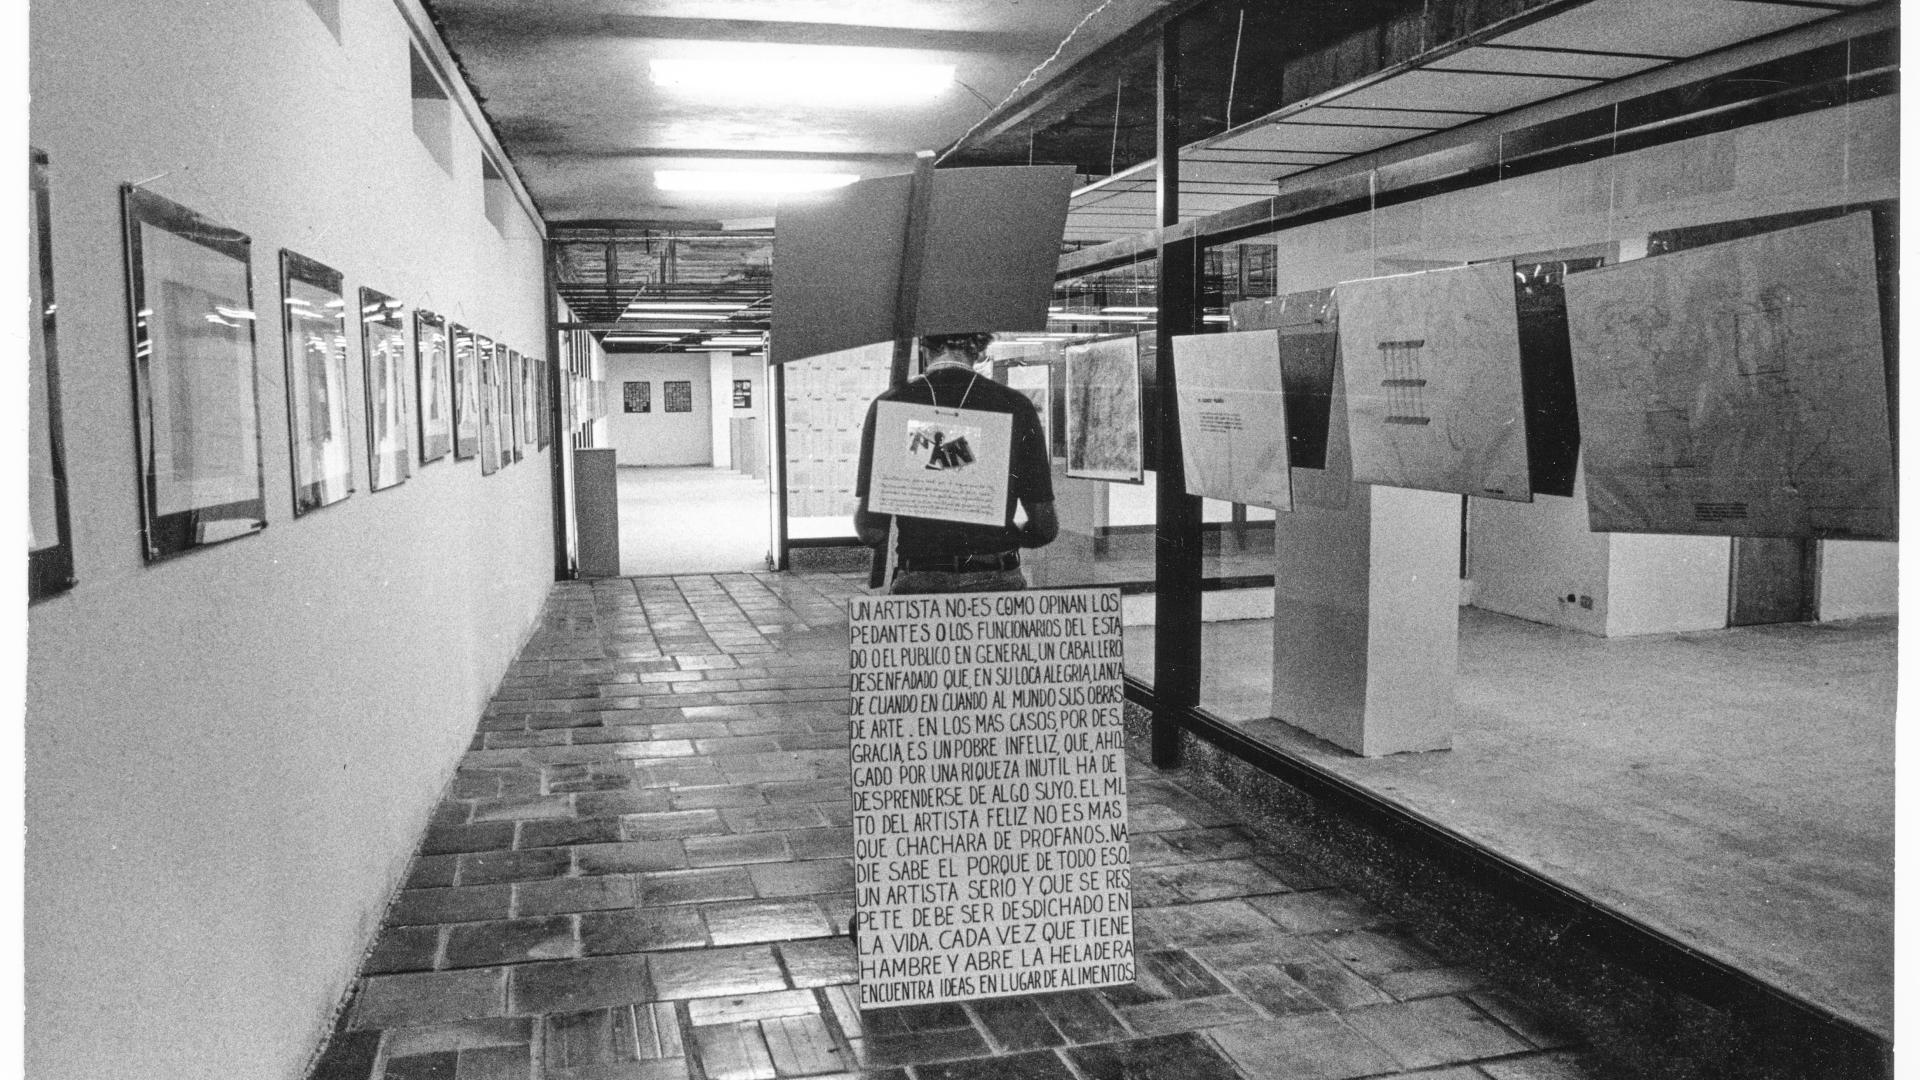 PAN
UN ARTISTA NO·ES COMO OPINAN LOS
PEDANTES O LOS FUNCIONARIOS DEL ESTA
DO O EL PUBLICO EN GENERAL, UN CABALLERO
DESENFADADO QUE, EN SU LOCA ALEGRIA, LANZA
DE CUANDO EN CUANDO AL MUNDO SUS OBRAS
DE ARTE. EN LOS MAS CASOS, POR DES.
GRACIA, ES UN POBRE INFELIZ, QUE, AHO.
GADO POR UNA RIQUEZA INUTIL HA DE
DESPRENDERSE DE ALGO SUYO. EL MI_
TO DEL ARTISTA FELIZ NO ES MAS
QUE CHACHARA DE PROFANOS. NA
DIE SABE EL PORQUE DE TODO ESO.
UN ARTISTA SERIO Y QUE SE RES
PETE DEBE SER DESDICHADO EN
LA VIDA. CADA VEZ QUE TIENE
HAMBRE Y ABRE LA HELADERA
ENCUENTRA IDEAS EN LUGAR DE ALIMENTOS.